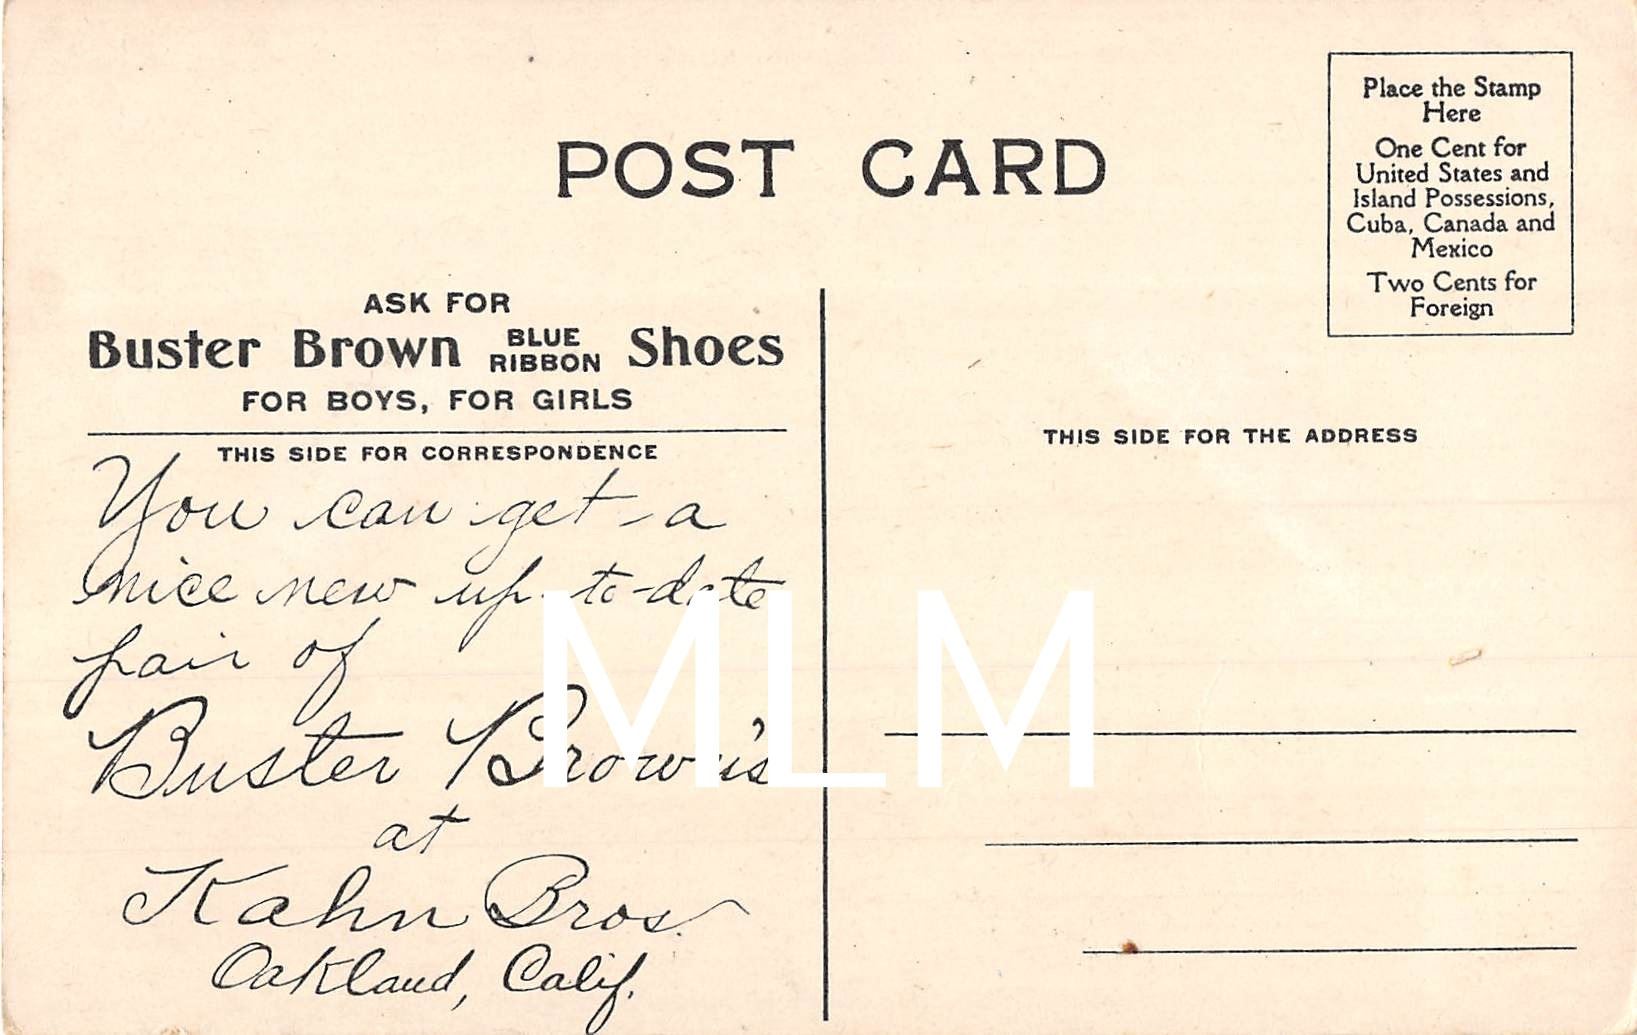 POST CARD
Place the Stamp
Here
One Cent for
United States and
Island Possessions,
Cuba, Canada and
Mexico
Two Cents for
Foreign
ASK FOR
Buster Brown BLUE RIBBON Shoes
FOR BOYS, FOR GIRLS
THIS SIDE FOR CORRESPONDENCE
You can get a
nice new up-to-date
pair of
Buster Brown's
at
Kahn Bros.
Oakland, Calif.
THIS SIDE FOR THE ADDRESS
MLM